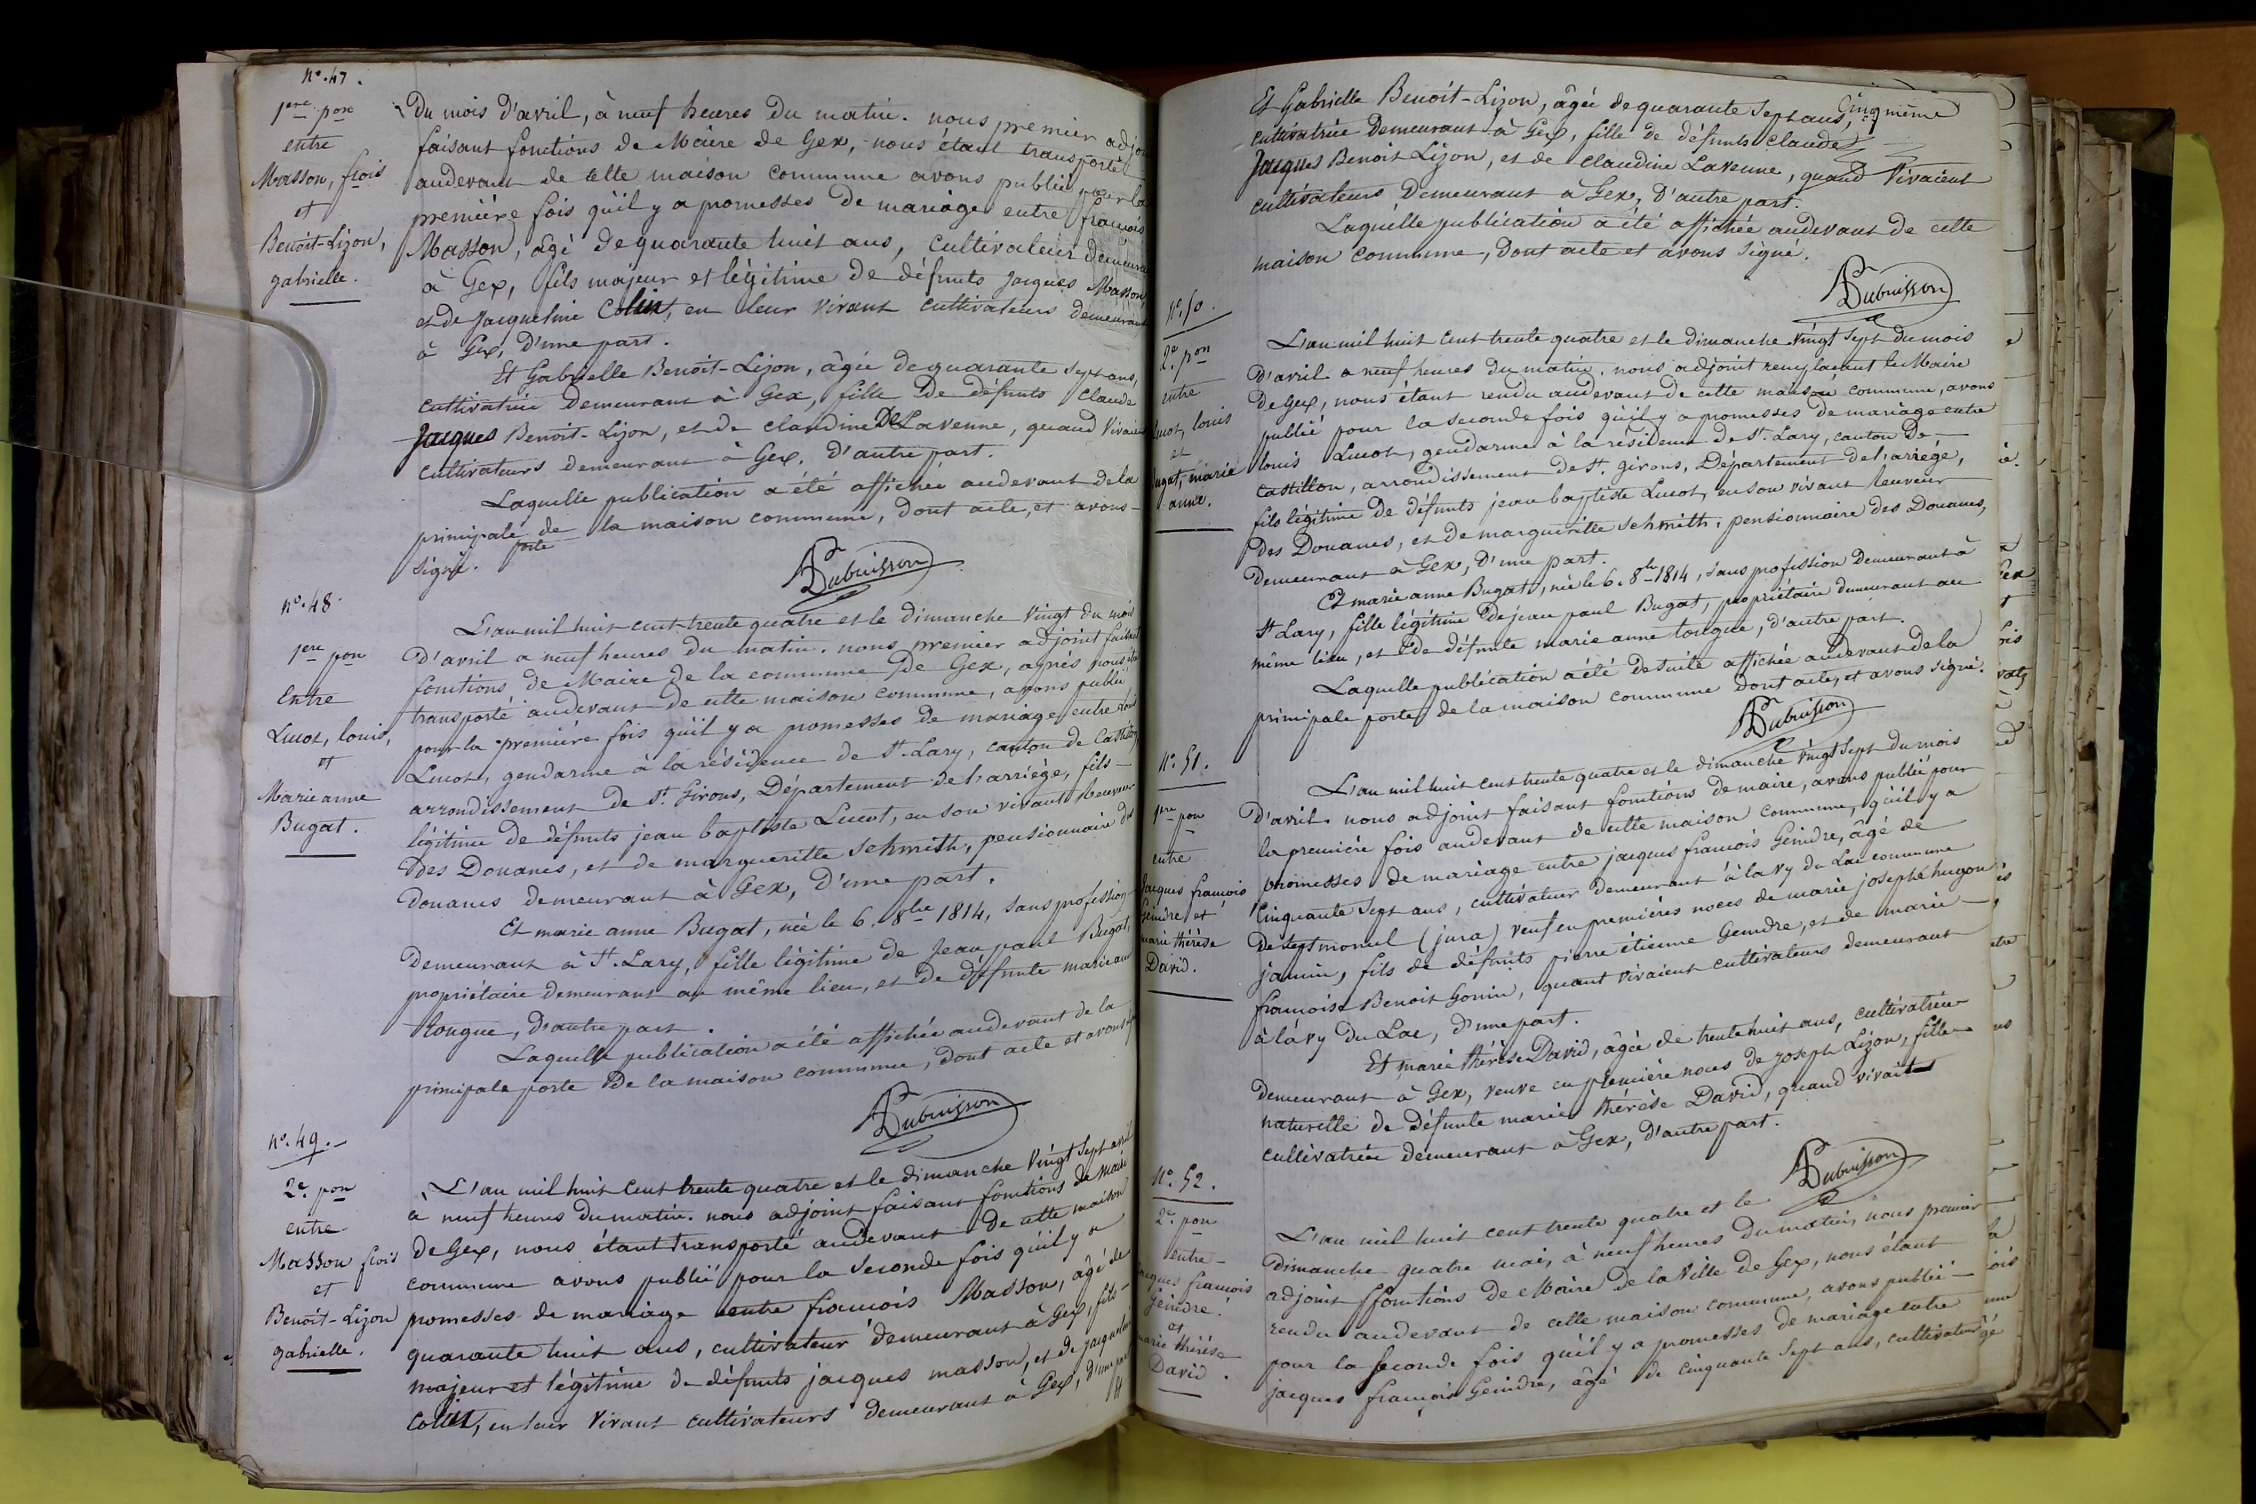 N.° 47.
1ere pon
entre
Masson, frois
et
Benoit-Lizon,
gabrielle.
Du mois d'avril, à neuf heures du matin. nous premier adjoint
faisant fonctions de Maire de Gex, nous étant transporté
audevant de cette maison commune avons publié pour la
première fois qu'il y a promesses de mariage entre françois
Masson, âgé de quarante huit ans, cultivateur demeurant
à Gex, fils majeur et légitime de défunts Jacques Masson,
et de Jacqueline Colin, en leur vivant cultivateurs demeurant
à Gex, d'une part.
Et Gabrielle Benoit-Lizon, âgée de quarante sept ans,
cultivatrice demeurant à Gex, fille de défunts Claude
Jacques Benoit-Lizon, et de claudine De Lavenne, quand vivaient
cultivateurs demeurant à Gex, d'autre part.
Laquelle publication a été affichée audevant de la
principale porte de la maison commune, dont acte, et avons
signé.
Dubuisson
N.° 48.
1ere pon
Entre
Lucot, louis,
et
Marie anne
Bugat.
L'an mil huit cent trente quatre et le dimanche vingt du mois
d'avril a neuf heures du matin. nous premier adjoint faisant
fonctions de Maire de la commune de Gex, après nous être
transporté audevant de cette maison commune, avons publié
pour la première fois qu'il y a promesses de mariage entre louis
Lucot, gendarme à la résidence de St. Lary, canton de Castillon,
arrondissement de St. Girons, Département de L'arriège, fils
légitime de défunts jean baptiste Lucot, en son vivant Receveur
des Douanes, et de margueritte Schmith, pensionnaire des
Douanes demeurant à Gex, d'une part.
Et marie anne Bugat, née le 6. 8bre 1814, sans profession
Demeurant à St. Lary, fille légitime de Jean paul Bugat,
propriétaire demeurant au même lieu, et de défunte marie anne
tougue, d'autre part.
Laquelle publication a été affichée audevant de la
principale porte de la maison commune, dont acte et avons signé
Dubuisson
N.° 49.
2e. pon
entre
Masson frois
et
Benoit-Lizon
gabrielle.
L'an mil huit cent trente quatre et le dimanche vingt sept avril
à neuf heures du matin. nous adjoint faisant fonctions de Maire
de Gex, nous étant transporté audevant de cette maison
commune avons publié pour la seconde fois qu'il y a
promesses de mariage entre françois Masson, âgé de
quarante huit ans, cultivateur demeurant à Gex, fils
majeur et légitime de défunts jacques masson, et de jacqueline
Colin, en leur vivant cultivateurs demeurant à Gex, d'une part
Cinquième
Et Gabrielle Benoit-Lizon, âgée de quarante sept ans,
cultivatrice demeurant à Gex, fille de défunts Claude
Jacques Benoit Lizon, et de claudine Lavenne, quand vivaient
cultivateurs demeurant à Gex, d'autre part.
Laquelle publication a été affichée audevant de cette
maison commune, dont acte et avons signé.
Dubuisson
N.° 50.
2e. pon
entre
Lucot, louis
et
Bugat, marie
anne.
L'an mil huit cent trente quatre et le dimanche vingt sept du mois
d'avril a neuf heures du matin. nous adjoint remplaçant le Maire
de Gex, nous étant rendu audevant de cette maison commune, avons
publié pour la seconde fois qu'il y a promesses de mariage entre
louis Lucot, gendarme à la résidence de St. Lary, canton de
Castillon, arrondissement de St. girons, Département de L'arriége,
fils légitime de défunts jean baptiste Lucot, en son vivant Receveur
des Douanes, et de margueritte Schmith, pensionnaire des Douanes,
demeurant à Gex, d'une part.
Et marie anne Bugat, née le 6. 8bre 1814, sans profession demeurant à
St. Lary, fille légitime de jean paul Bugat, propriétaire demeurant au
même lieu, et de défunte marie anne tougue, d'autre part.
Laquelle publication a été de suite affichée audevant de la
principale porte de la maison commune dont acte, et avons signé.
Dubuisson
N.° 51.
1ere pon
entre
Jacques françois
Geindre et
marie thérèse
David.
L'an mil huit cent trente quatre et le dimanche vingt sept du mois
d'avril. nous adjoint faisant fonctions de maire, avons publié pour
la première fois audevant de cette maison commune, qu'il y a
promesses de mariage entre jacques françois Geindre, âgé de
cinquante sept ans, cultivateur demeurant à la vy du Lac commune
de septmoncel (jura) veuf en premières noces de marie josephe hugon
jannin, fils de défunts pierre étienne Geindre, et de marie
françoise Benoit Gonin, quant vivaient cultivateurs demeurant
à la vy du Lac, d'une part.
Et marie thérèse David, âgée de trente huit ans, cultivatrice
demeurant à Gex, veuve en première noces de joseph Lizon, fille
naturelle de défunte marie thérèse David, quand vivait
cultivatrice demeurant à Gex, d'autre part.
Dubuisson
N.° 52.
2e. pon
entre
Jacques françois
Geindre.
et
marie thérèse
David.
L'an mil huit cent trente quatre et le
dimanche quatre mai, à neuf heures du matin, nous premier
adjoint ffonctions de Maire de la ville de Gex, nous étant
rendu audevant de cette maison commune, avons publié
pour la seconde fois qu'il y a promesses de mariage entre
jacques françois Geindre, âgé de cinquante sept ans, cultivateur